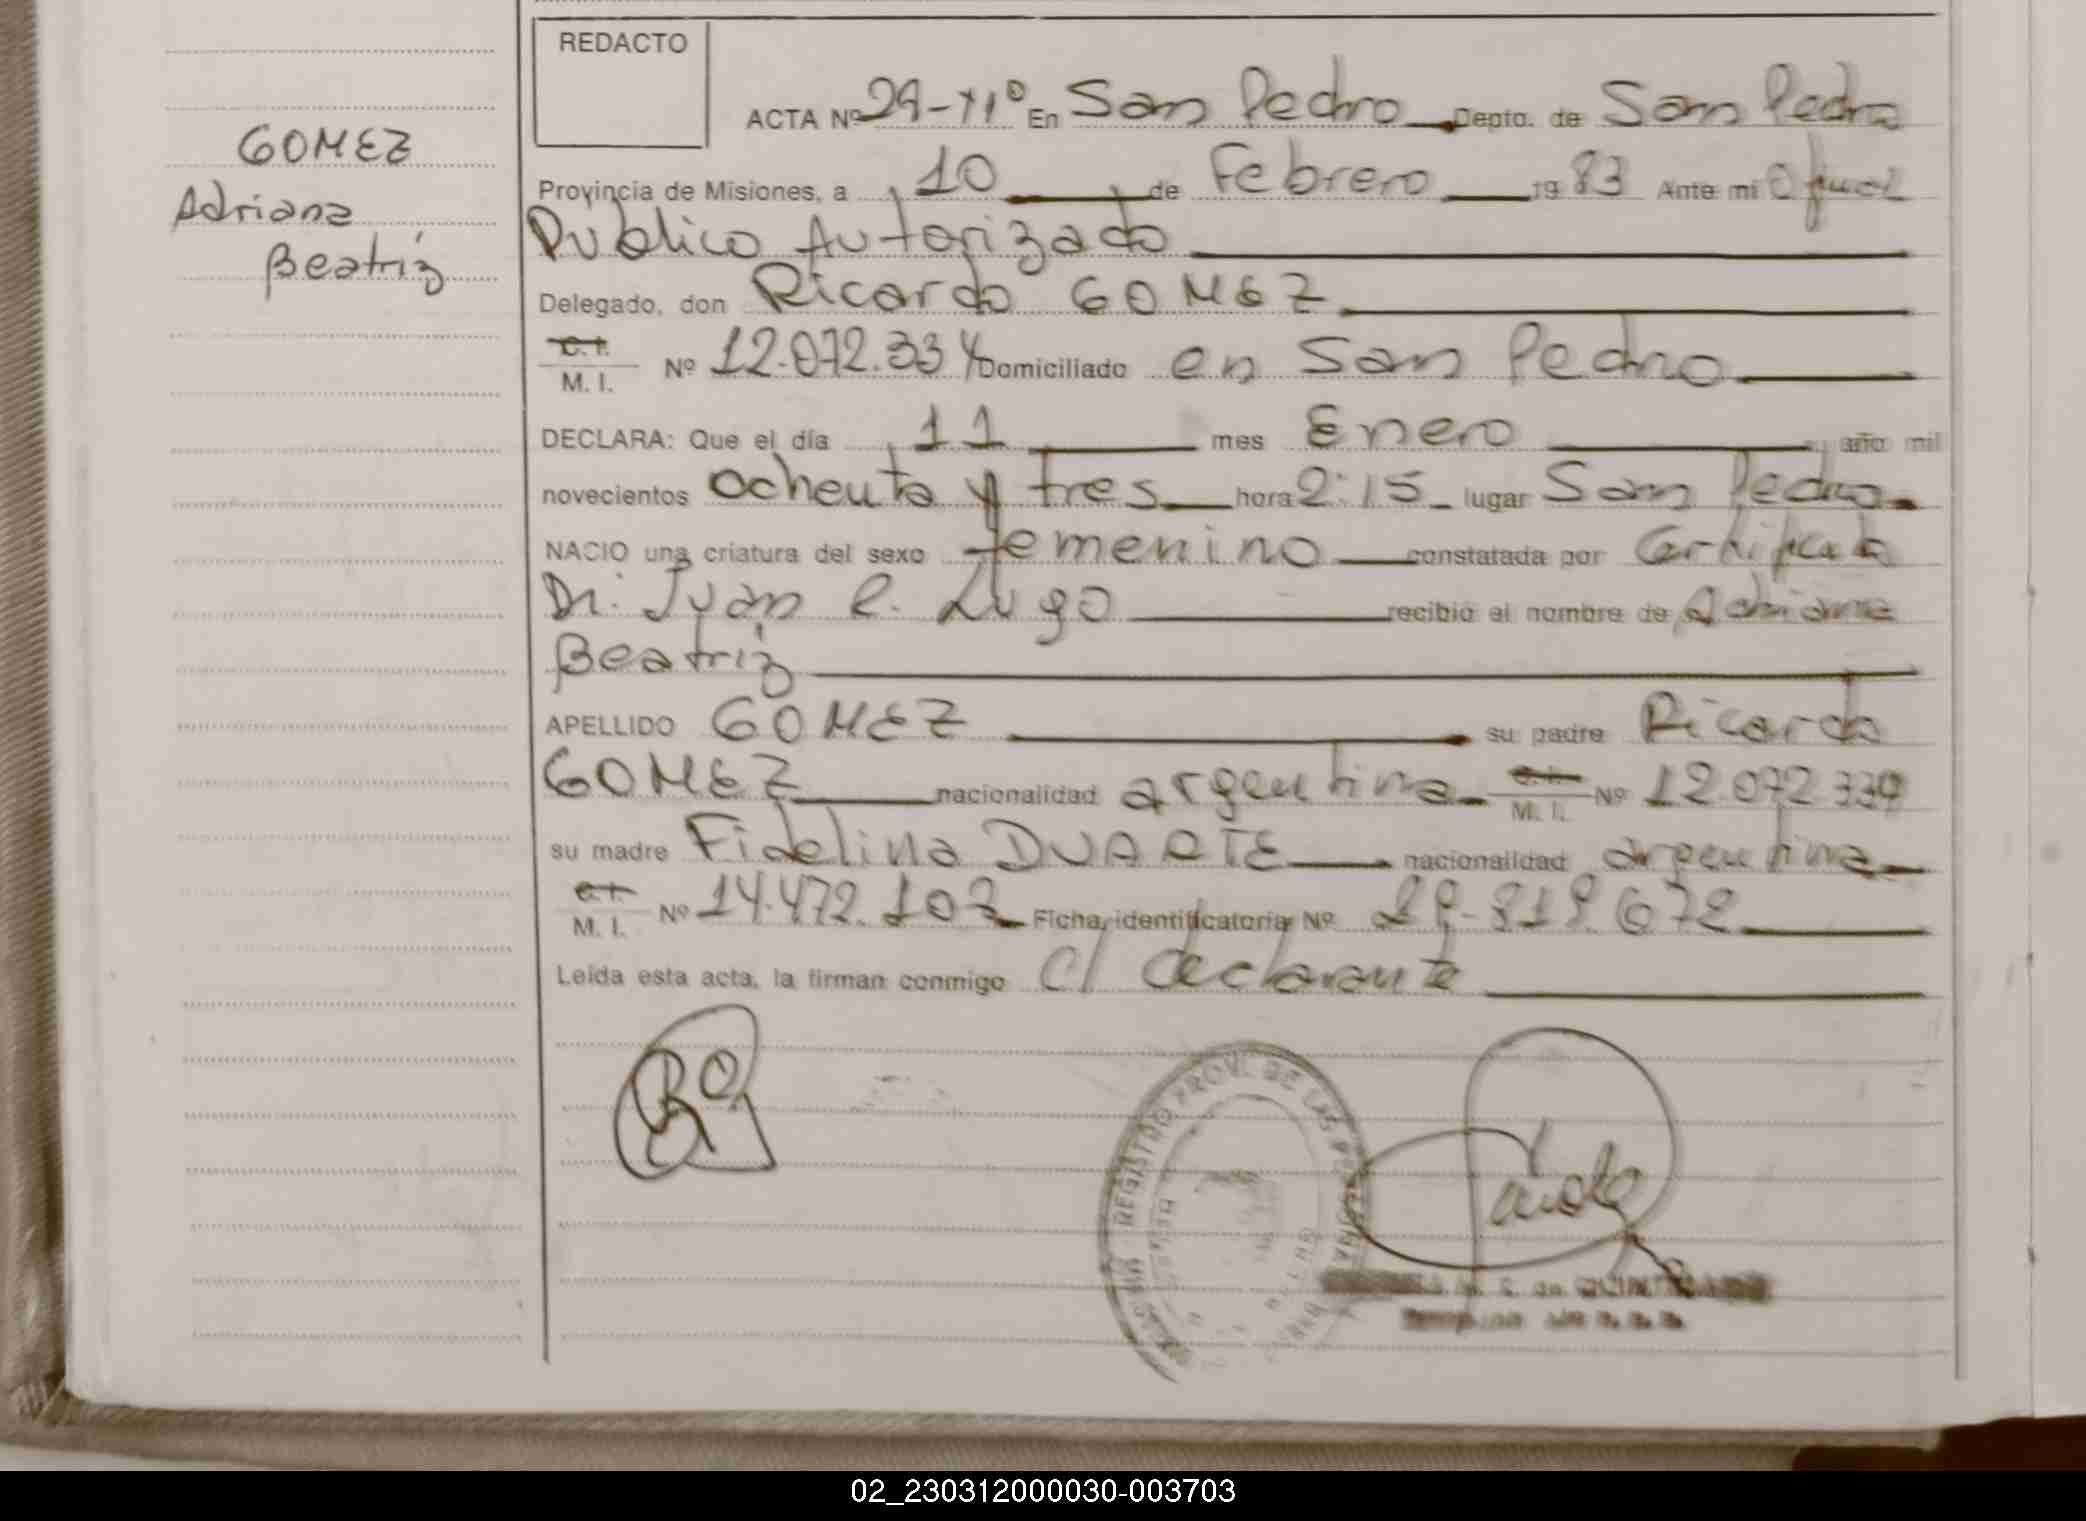 REDACTO
ACTA Nº 29-11º En San Pedro Depto. de San Pedro
GOMEZ
Adriana
Beatriz
Provincia de Misiones, a 10 de Febrero 1983 Ante mi Oficial
Publico Autorizado
Delegado, don Ricardo GOMEZ
C. I.
M. I. Nº 12.072.334 Domiciliado en San Pedro
DECLARA: Que el día 11 mes Enero año mil
novecientos ochenta y tres hora 2:15 lugar San Pedro
NACIO una criatura del sexo femenino constatada por Certificado
Dr. Juan C. Lugo recibió el nombre de Adriana
Beatriz
APELLIDO GOMEZ su padre Ricardo
GOMEZ nacionalidad argentina C. I.
M. I. Nº 12.072.334
su madre Fidelina DUARTE nacionalidad argentina
C. I.
M. I. Nº 14.472.103 Ficha identificatoria Nº 29.819.672
Leída esta acta, la firman conmigo el declarante
REGISTRO PROV. DE LAS PERSONAS
02_230312000030-003703